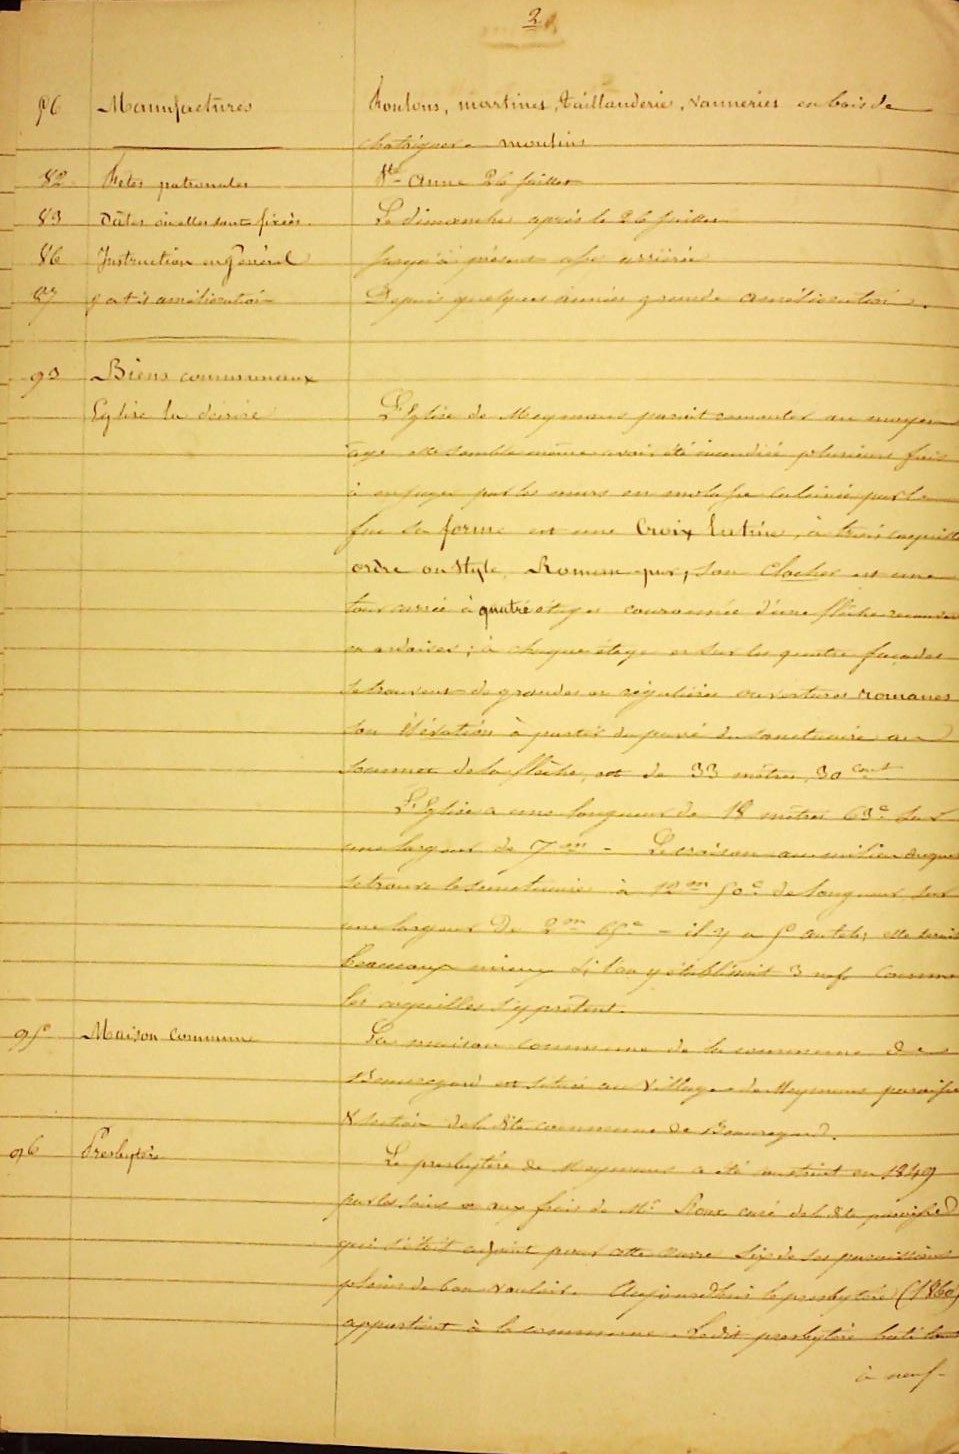 2
76 Manufactures Foulons, martinets, Taillanderie, vanneries en bois de
chateigner. moulins
82 Fêtes patronales Ste Anne 26 juillet
83 Dates où elles sont fixées. Le dimanche après le 26 juillet
86 Instruction en Général jusqu'à présent assez arriérée
87 y a t-il amélioration Depuis quelques années grande amélioration.
93 Biens communaux
Eglise la décrire L'Eglise de Meymans parait remonter au moyen
âge elle semble même avoir été incendiée plusieurs fois
à en juger par les murs en molasse calcinée par le
feu sa forme est une Croix latine, à trois coquilles
ordre ou style Roman pur, son clocher est une
tour carrée à quatre étages couronnée d'une flèche recouverte
en ardoises; à chaque étage et sur les quatre façades
se trouvent de grandes et régulières ouvertures romanes
son élévation à partir du pavé du sanctuaire au
sommet de la flèche, est de 33 mètres, 30 cent
L'Eglise a une longueur de 18 mètres 63c sur
une largeur de 7m - Le croison au milieu duquel
se trouve le sanctuaire à 12m 50c de longueur sur
une largeur De 2m 65c - il y a 5 autels; elle serait
beaucoup mieux si l'on y établissait 3 nefs comme
les coquilles s'y prêtent.
95 Maison commune La maison commune de la commune De
Beauregard est située au village de Meymans paroisse
& section de la dite commune de Beauregard.
96 Presbytère Le presbytère de Meymans a été construit en 1849
par les soins et aux frais de Mr Roux curé de la dite paroisse
qui s'était adjoint pour cette œuvre six de ses paroissiens
pleins de bon vouloir. Aujourd'hui le presbytère (1860)
appartient à la commune. Ledit presbytère bati tout
à neuf-